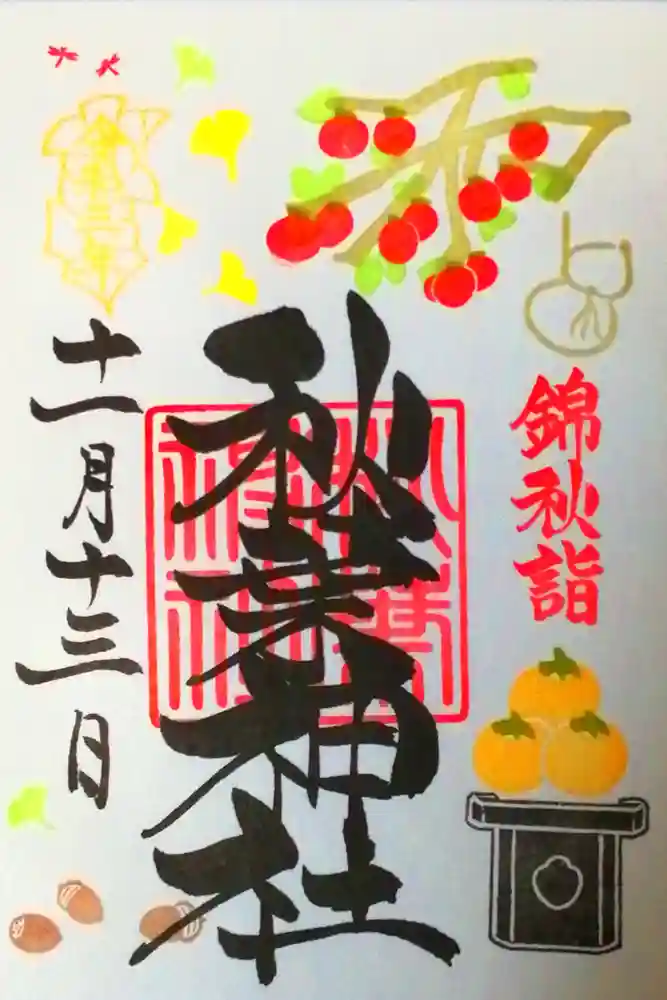 錦秋詣
秋葉神社
十一月十三日